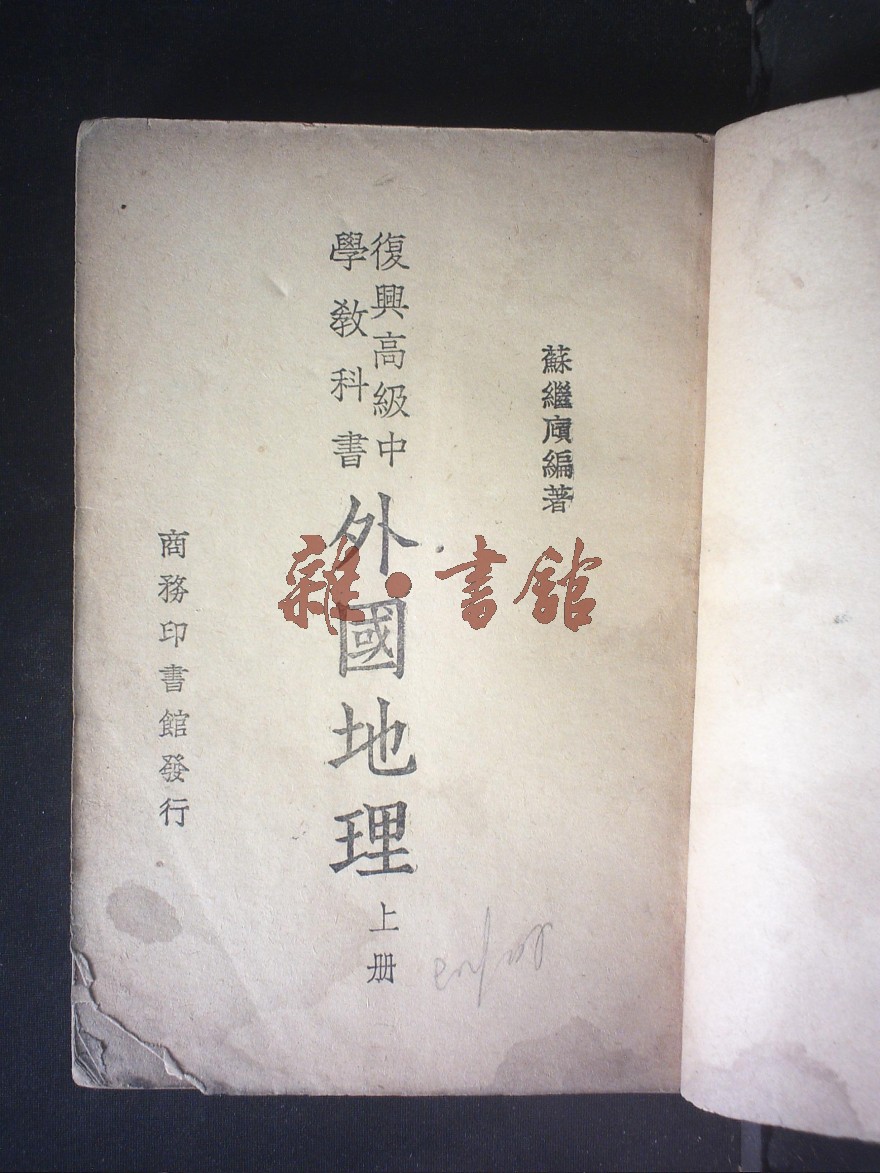 蘇繼廎編著
復興高級中
學教科書
外國地理
上册
商務印書館發行
雜·書館